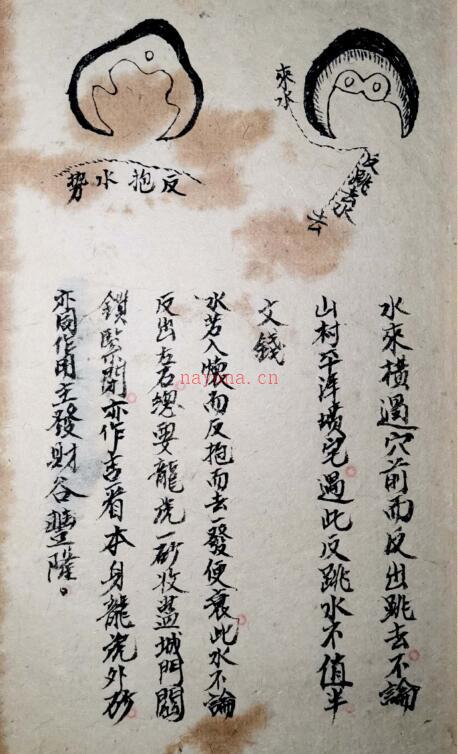 來水
反跳水
去
反抱水勢
水來橫過穴前而反出跳去不論
山村平洋墳宅遇此反跳水不值半
文錢
水若入懷而反抱而去一發便衰此水不論
反出左右總要龍虎一砂收盡城門關
鎖緊閉亦作吉看本身龍虎外砂
亦同作用主發財谷豐隆。
nayona.cn